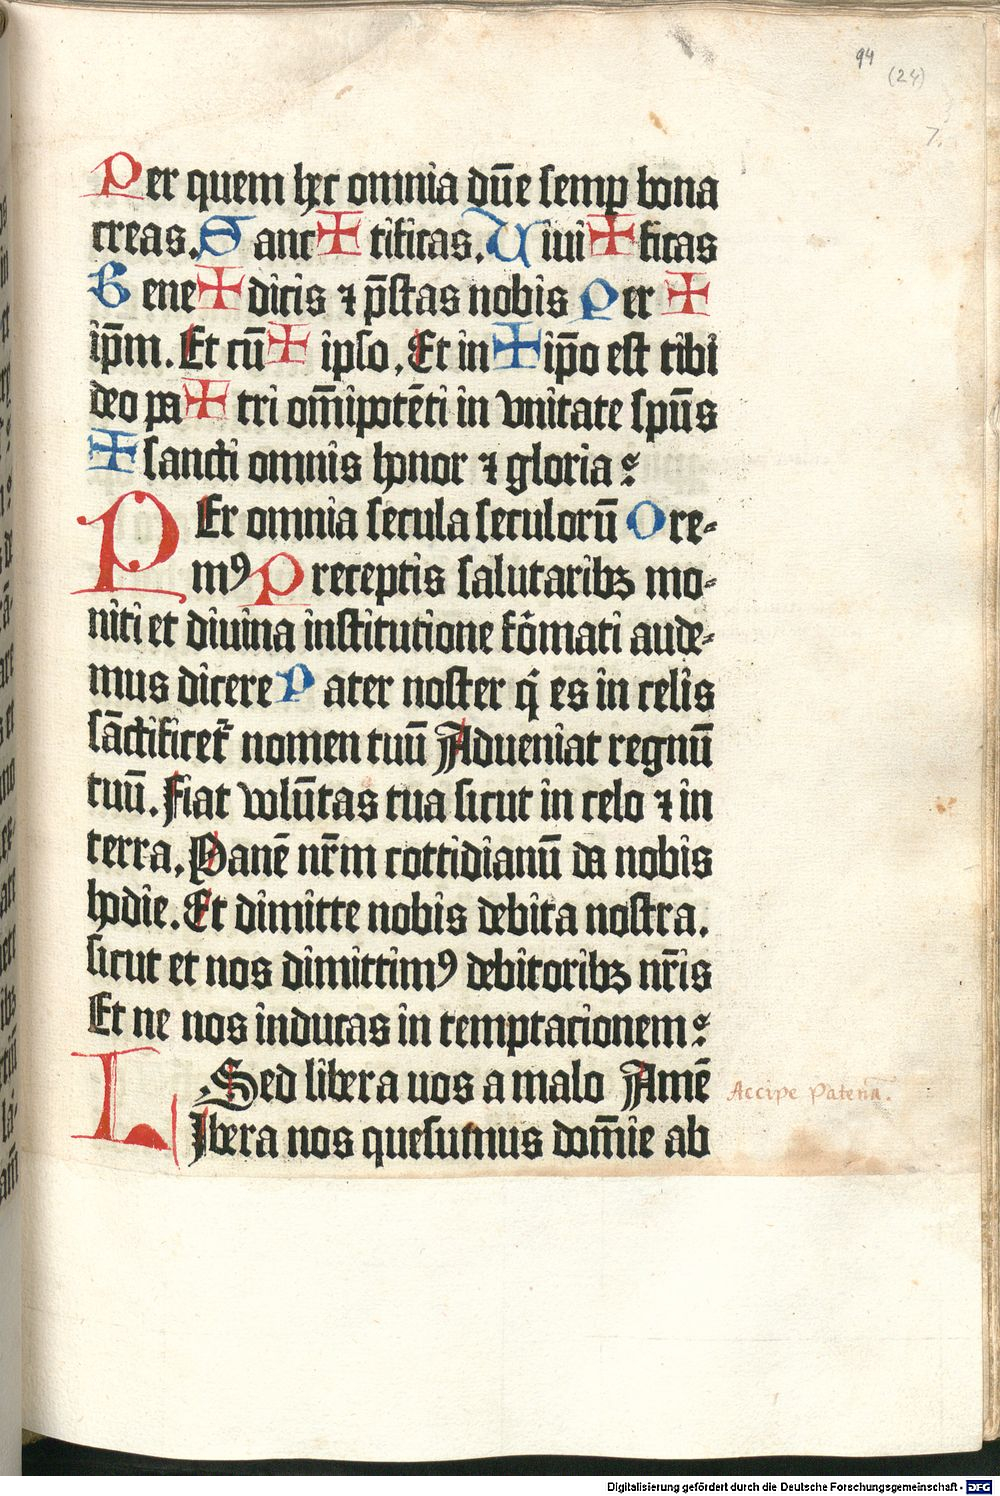 94
(24)
7.
Per quem hec omnia dn̄e semꝑ bona
creas. Sanc✠tificas. Uiui✠ficas
Bene✠dicis ⁊ p̄stas nobis Per ✠
ip̄m. Et cū✠ ipso. Et in✠ip̄o est tibi
deo pa✠tri om̄ipotēti in vnitate spūs
✠ sancti omnis honor ⁊ gloria:
PEr omnia secula seculorū Ore-
mꝰ Preceptis salutaribꝫ mo-
niti et diuina institutione fōmati aude-
mus dicere Pater noster q̄ es in celis
sāctificetᷣ nomen tuū Adueniat regnū
tuū. Fiat volūtas tua sicut in celo ⁊ in
terra. Panē nr̄m cottidianū da nobis
hodie. Et dimitte nobis debita nostra.
sicut et nos dimittimꝰ debitoribꝫ nr̄is
Et ne nos inducas in temptacionem:
Sed libera uos a malo Amē
Accipe Patenā.
LIbera nos quesumus dom̄ie ab
Digitalisierung gefördert durch die Deutsche Forschungsgemeinschaft - DFG